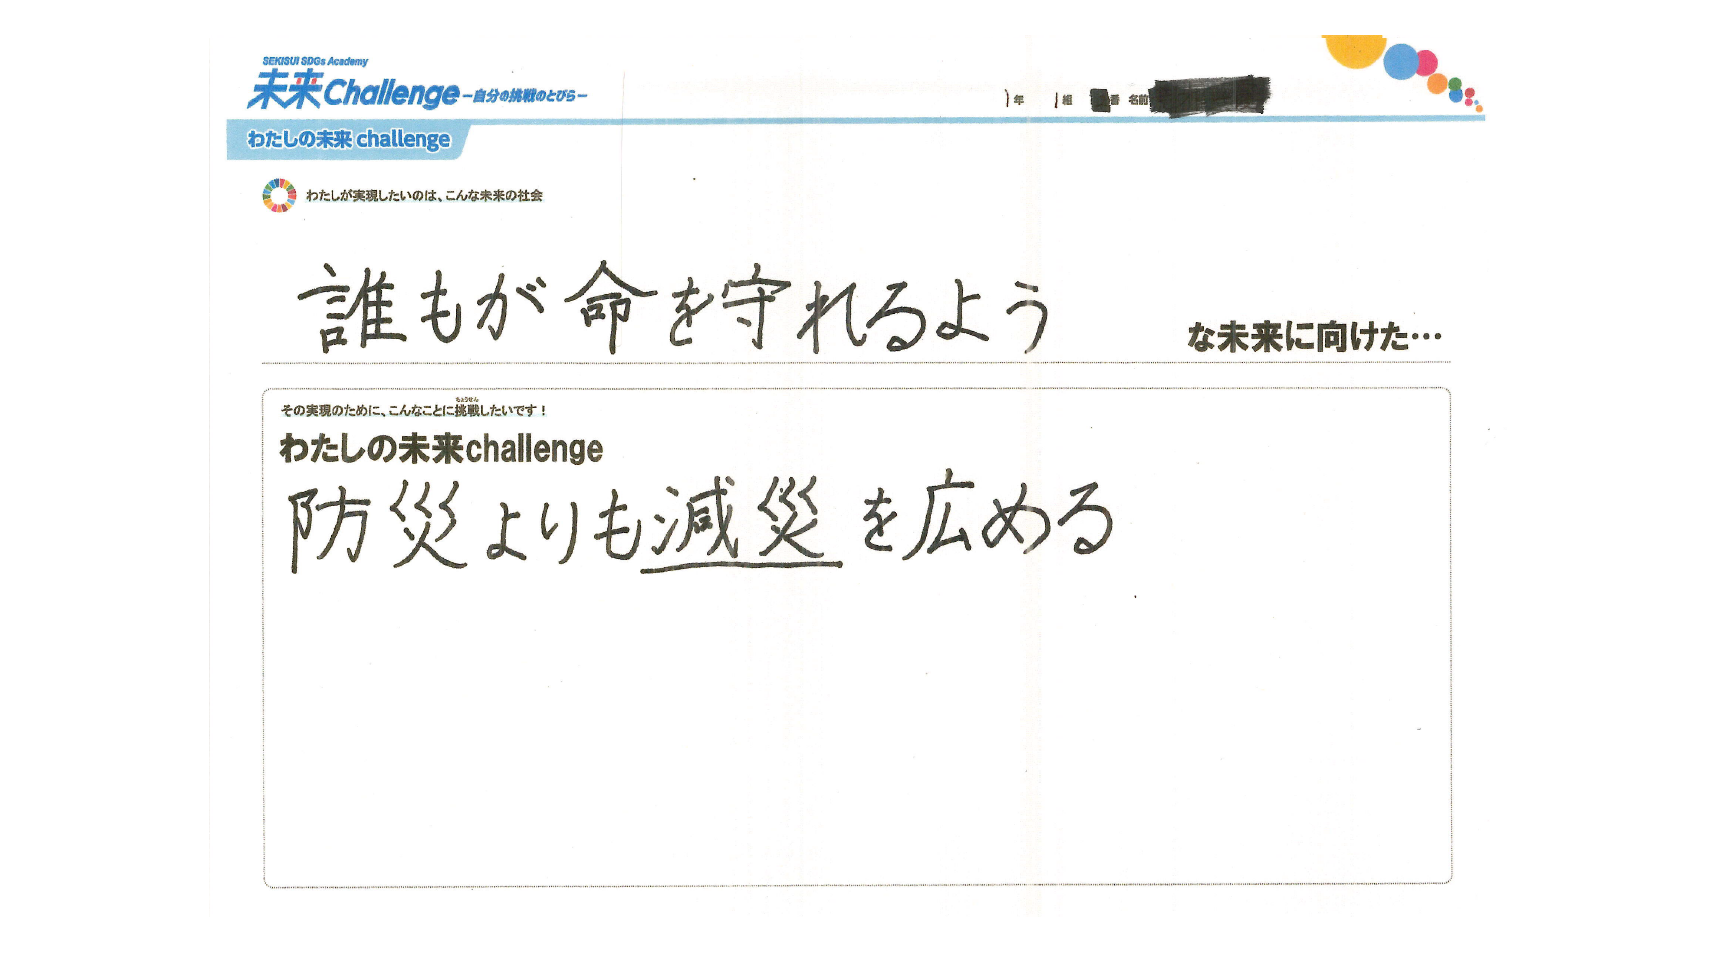 SEKISUI SDGs Academy
未来Challenge −自分の挑戦のとびら−
1年 1組 番 名前
わたしの未来 challenge
わたしが実現したいのは、こんな未来の社会
誰もが命を守れるよう な未来に向けた…
ちょうせん
その実現のために、こんなことに挑戦したいです！
わたしの未来challenge
防災よりも減災を広める